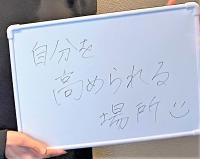 自分を
高められる
場所